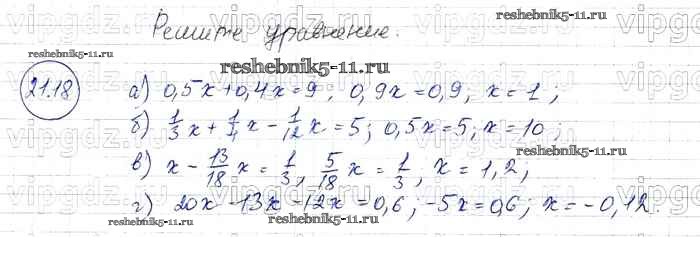 Решите уравнение.
21.18 а) 0,5x+0,4x=9; 0,9x=0,9, x=1;
б) 1/3 x + 1/4 x - 1/12 x = 5; 0,5x=5; x=10;
в) x - 13/18 x = 1/3, 5/18 x = 1/3, x = 1,2;
г) 20x - 13x - 12x = 0,6; -5x=0,6; x=-0,12.
reshebnik5-11.ru
reshebnik5-11.ru
reshebnik5-11.ru
reshebnik5-11.ru
vipgdz.ru